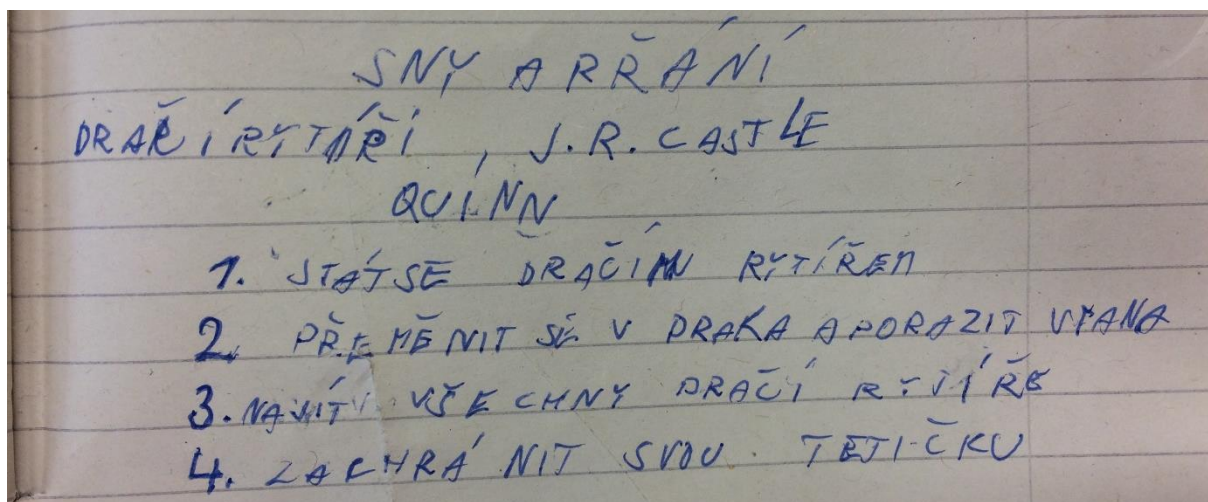 SNY A PŘÁNÍ
DRAČÍ RYTÍŘI, J.R. CASTLE
QUINN
1. STÁT SE DRAČÍM RYTÍŘEM
2. PŘEMĚNIT SE V DRAKA A PORAZIT VRANA
3. NAJÍT VŠECHNY DRAČÍ RYTÍŘE
4. ZACHRÁNIT SVOU TETIČKU